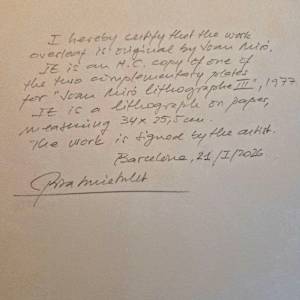 I hereby certify that the work
overleaf is original by Joan Miró.
It is an H.C. copy of one of
the two complementary plates
for "Joan Miró lithographe III", 1977
It is a lithograph on paper,
measuring 34 x 25,5 cm.
The work is signed by the artist.
Barcelona, 21/I/2026